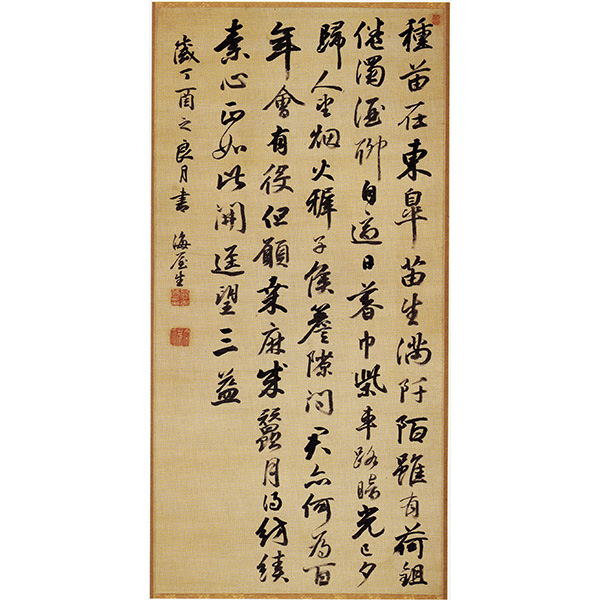 種苗在東皐苗生滿阡陌雖有荷鉏
倦濁酒聊自適日暮巾柴車路暗光已夕
歸人望烟火稺子候簷隙問君亦何為百
年會有役但願桑麻成蠶月得紡績
素心正如此開逕望三益
歲丁酉之良月書 海屋生